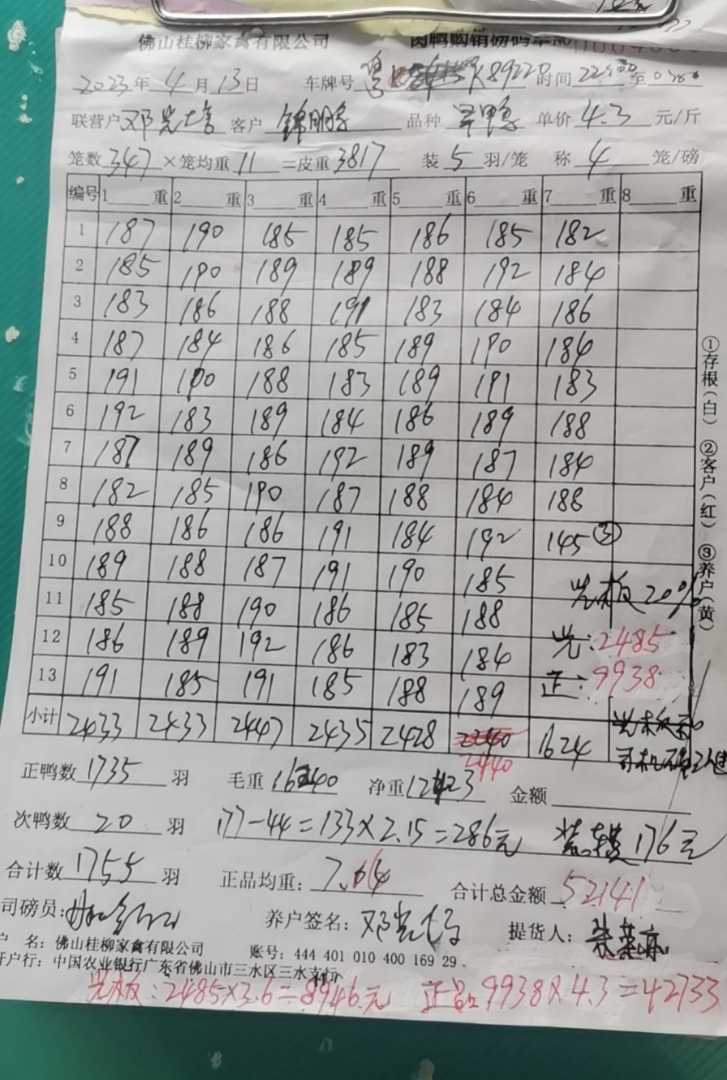 佛山桂柳家禽有限公司 肉鸭购销磅码单
2023年4月13日 车牌号 粤 K89220 时间 至
联营户 邓 客户 锦明 品种 单价4.3元/斤
笼数347×笼均重11=皮重3817 装5羽/笼 称4笼/磅
编号 1 重 2 重 3 重 4 重 5 重 6 重 7 重 8 重
1 187 190 185 185 186 185 182
2 185 190 189 189 188 192 184
3 183 186 188 191 183 184 186
4 187 184 186 185 189 190 184
5 191 190 188 183 189 191 183
6 192 183 189 184 186 189 188
7 187 189 186 192 189 187 184
8 182 185 190 187 188 184 188
9 188 186 186 191 184 192 145 ③
10 189 188 187 191 190 185
11 185 188 190 186 185 188 光板20%
12 186 189 192 186 183 184 光:2485
13 191 185 191 185 188 189 正:9938
小计 2433 2433 2447 2435 2428 2440 1624
正鸭数1735羽 毛重16240 净重12423 金额
次鸭数20羽 177-44=133×2.15=286元 176元
合计数1755羽 正品均重:7.64 合计总金额52141
司磅员: 养户签名: 邓 提货人:
户 名:佛山桂柳家禽有限公司 账号:444 401 010 400 169 29
开户行:中国农业银行广东省佛山市三水区三水支行
光板:2485×3.6=8946元 正品:9938×4.3=42733
①存根(白) ②客户(红) ③养户(黄)